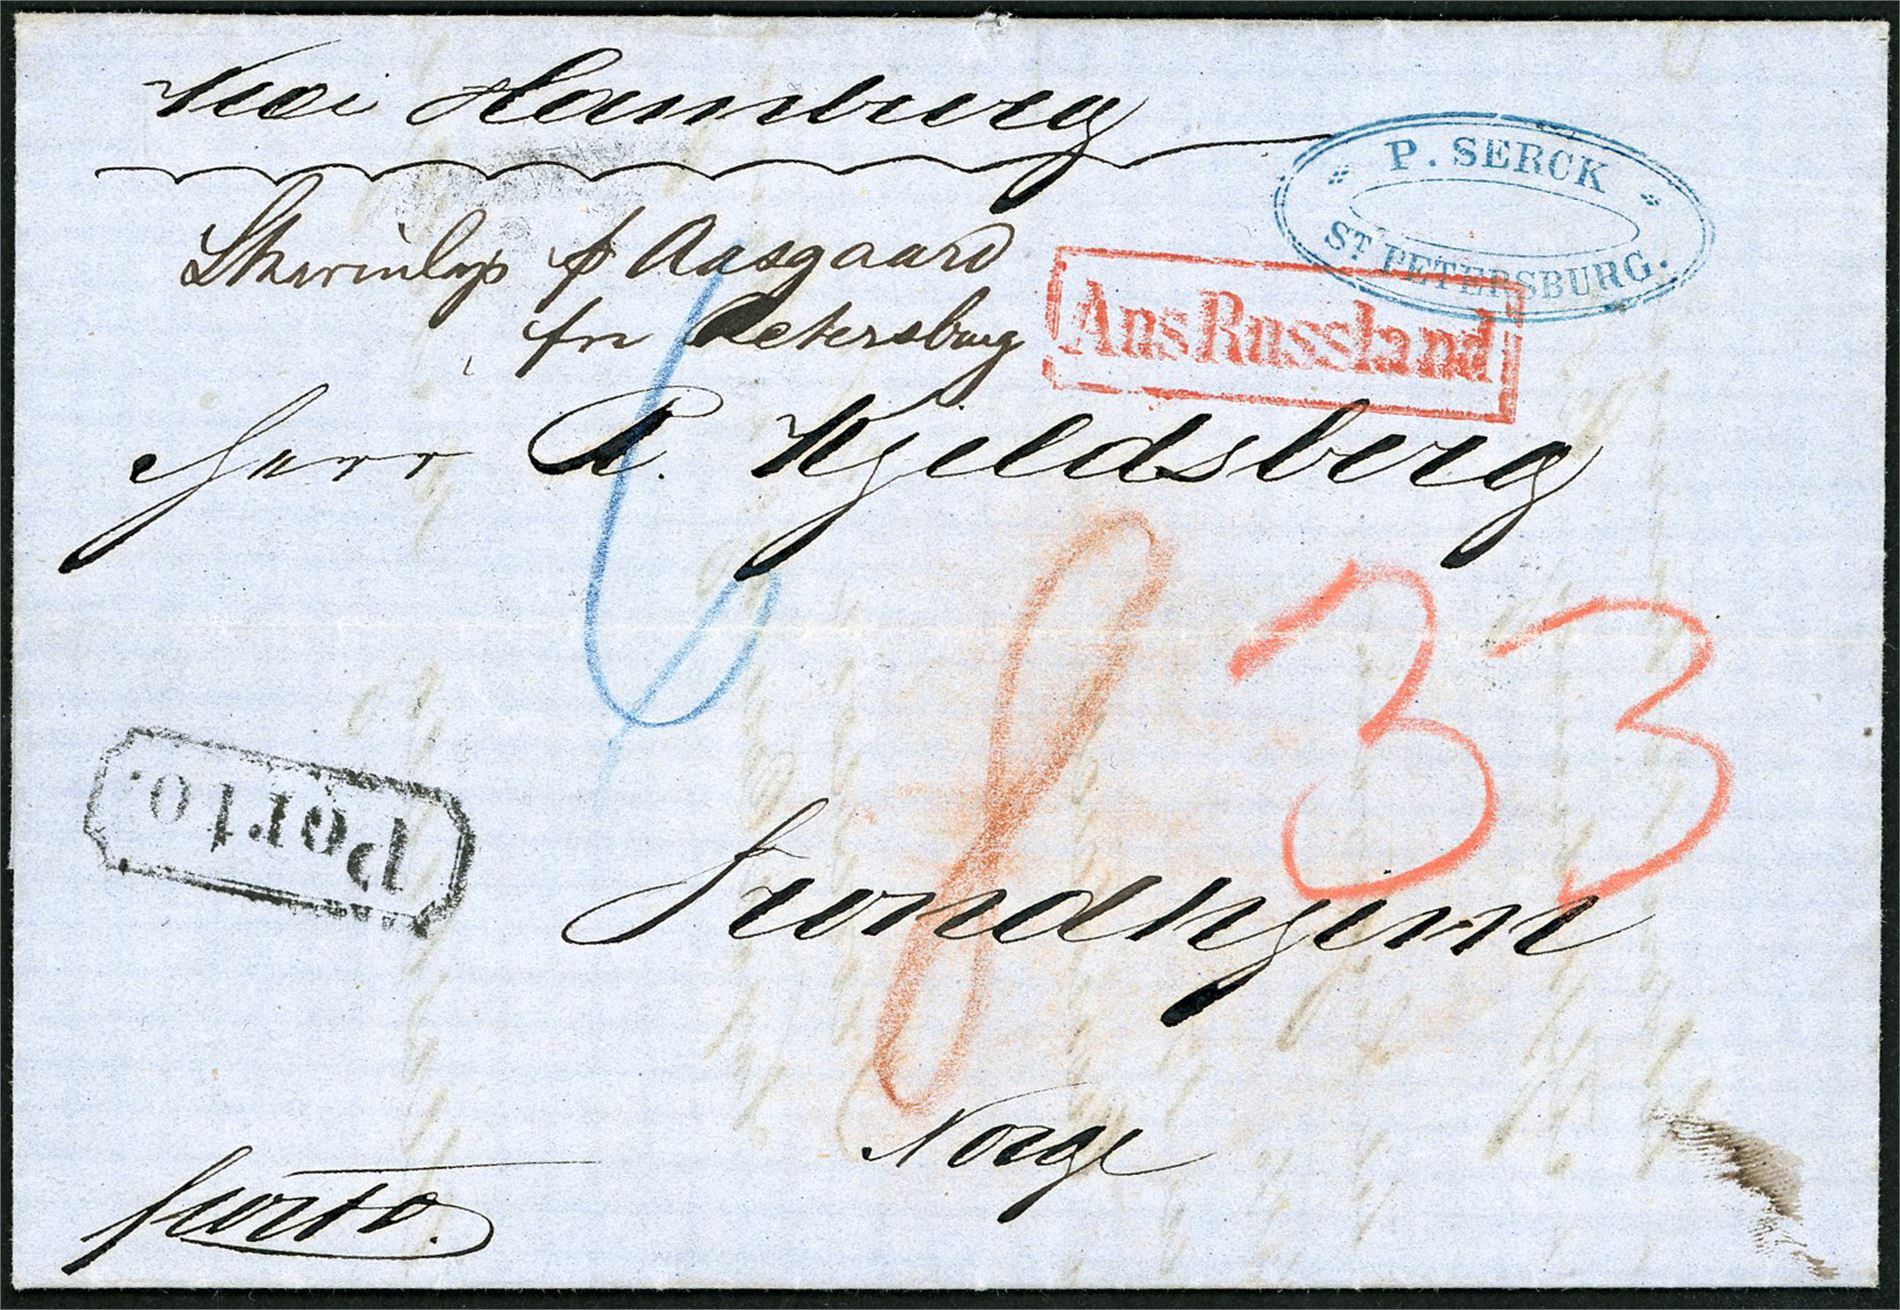 Via Hamburg
P. SERCK
ST PETERSBURG.
p Aasgaard
fra Petersburg
Aus Russland
Herr P. Kjeldsberg
6
33
Porto.
Trondhjem
Norge
porto.